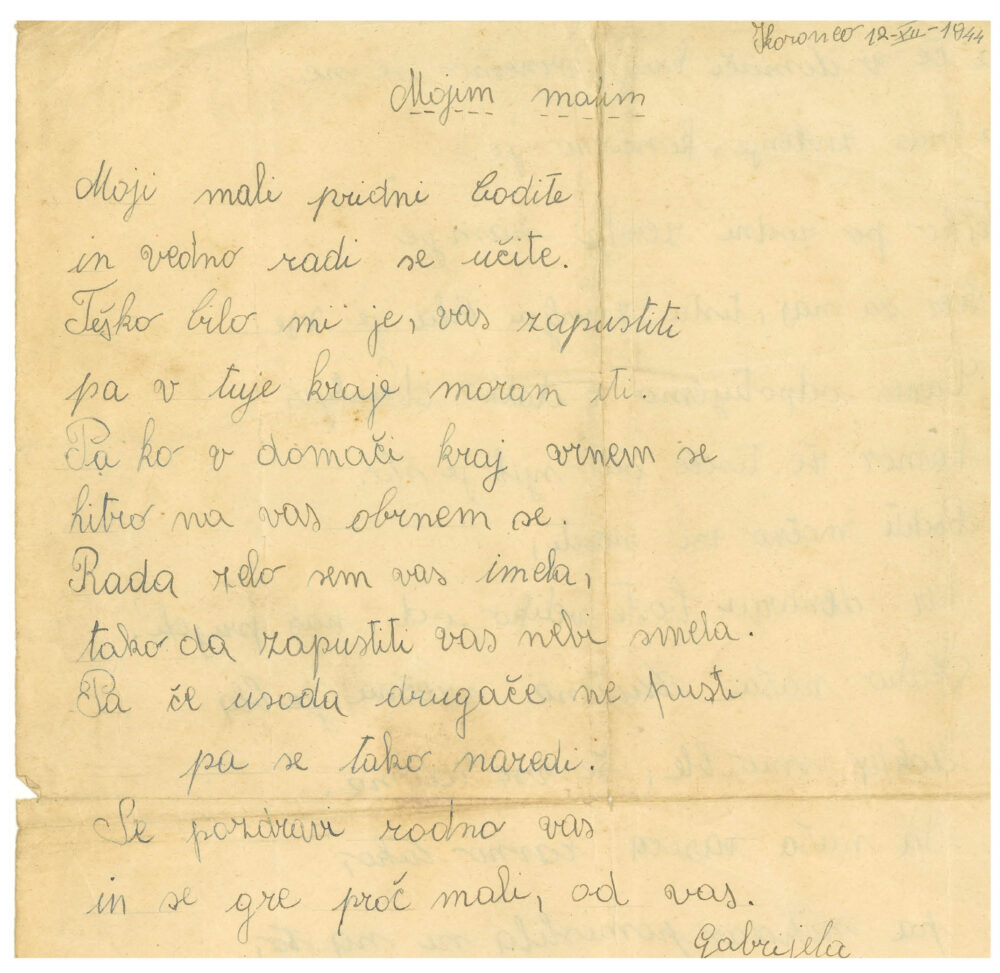 12-XII-1944
Mojim malim
Moji mali pridni bodite
in vedno radi se učite.
Težko bilo mi je, vas zapustiti
pa v tuje kraje moram iti.
Pa ko v domači kraj vrnem se
hitro na vas obrnem se.
Rada zelo sem vas imela,
tako da zapustiti vas nebi smela.
Pa če usoda drugače ne pusti
pa se tako naredi.
Se pozdravi rodno vas
in se gre proč mali, od vas.
Gabrijela